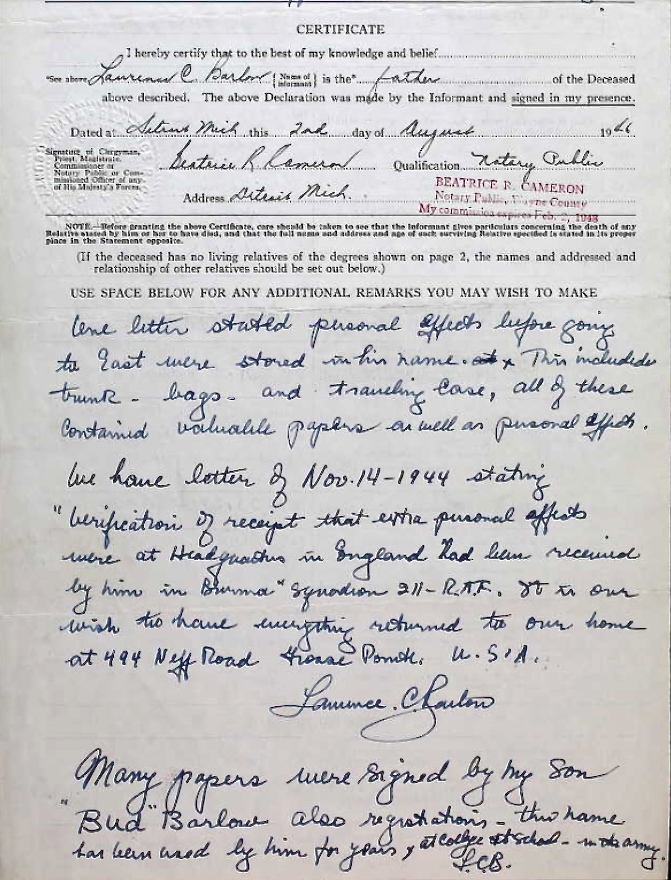 CERTIFICATE
I hereby certify that to the best of my knowledge and belief
*See above Laurence C. Barlow {Name of informant} is the* father of the Deceased
above described. The above Declaration was made by the Informant and signed in my presence.
Dated at Detroit Mich this 2nd day of August 1946
Signature of Clergyman,
Priest, Magistrate,
Commissioner or
Notary Public or Com-
missioned Officer of any
of His Majesty's Forces.
Beatrice R Cameron Qualification Notary Public
Address Detroit Mich.
BEATRICE R. CAMERON
Notary Public, Wayne County
My commission expires Feb. 2, 1948
NOTE.—Before granting the above Certificate, care should be taken to see that the Informant gives particulars concerning the death of any
Relative stated by him or her to have died, and that the full name and address and age of each surviving Relative specified is stated in its proper
place in the Statement opposite.
(If the deceased has no living relatives of the degrees shown on page 2, the names and addressed and
relationship of other relatives should be set out below.)
USE SPACE BELOW FOR ANY ADDITIONAL REMARKS YOU MAY WISH TO MAKE
One letter stated personal effects before going
to East were stored in his name. x This includes
trunk - bags - and traveling case, all of these
contained valuable papers as well as personal effects.
We have letter of Nov. 14-1944 stating
"Verification of receipt that extra personal effects
were at Headquarters in England had been received
by him in Burma" Squadron 211-R.A.F. It is our
wish to have everything returned to our home
at 494 Neff Road Grosse Pointe. U.S.A.
Laurence. C Barlow
Many papers were signed by my Son
"Bud" Barlow also registrations - this name
has been used by him for years, at college at school - in the army.
L.C.B.